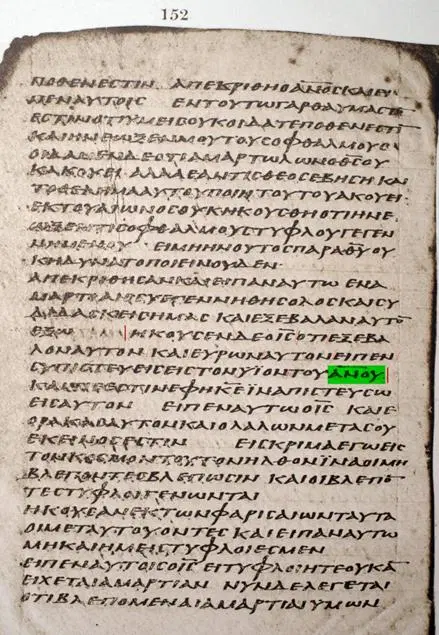 152
ΠΟΘΕΝΕΣΤΙΝ ΑΠΕΚΡΙΘΗΟΑΝ̅Ο̅Σ̅ΚΑΙΕΙ
ΠΕΝΑΥΤΟΙΣ ΕΝΤΟΥΤΩΓΑΡΘΑΥΜΑΣΤΟ̅
ΕΣΤΙΝΟΤΙΥΜΕΙΣΟΥΚΟΙΔΑΤΕΠΟΘΕΝΕΣΤΙ̅
ΚΑΙΗΝΕΩΞΕΝΜΟΥΤΟΥΣΟΦΘΑΛΜΟΥΣ
ΟΙΔΑΜΕΝΔΕΟΤΙΑΜΑΡΤΩΛΩΝΟΘ̅Σ̅ΟΥ
ΚΑΚΟΥΕΙ ΑΛΛΑΕΑΝΤΙΣΘΕΟΣΕΒΗΣΗ ΚΑΙ
ΤΟΘΕΛΗΜΑΑΥΤΟΥΠΟΙΗ ΤΟΥΤΟΥΑΚΟΥΕΙ
ΕΚΤΟΥΑΙΩΝΟΣΟΥΚΗΚΟΥΣΘΗΟΤΙΗΝΕ
ΩΞΕΝΤΙΣΟΦΘΑΛΜΟΥΣΤΥΦΛΟΥΓΕΓΕΝ
ΝΗΜΕΝΟΥ ΕΙΜΗΗΝΟΥΤΟΣΠΑΡΑΘ̅Υ̅ΟΥ
ΚΗΔΥΝΑΤΟΠΟΙΕΙΝΟΥΔΕΝ
ΑΠΕΚΡΙΘΗΣΑΝΚΑΙΕΙΠΑΝΑΥΤΩ ΕΝΑ
ΜΑΡΤΙΑΙΣΣΥΕΓΕΝΝΗΘΗΣΟΛΟΣΚΑΙΣΥ
ΔΙΔΑΣΚΕΙΣΗΜΑΣ ΚΑΙΕΞΕΒΑΛΑΝΑΥΤΟ̅
ΕΞΩ ΗΚΟΥΣΕΝΔΕΟΙ̅Σ̅ΟΤΙΕΞΕΒΑ
ΛΟΝΑΥΤΟΝ ΚΑΙΕΥΡΩΝΑΥΤΟΝΕΙΠΕΝ
ΣΥΠΙΣΤΕΥΕΙΣΕΙΣΤΟΝΥ̅Ϊ̅ΟΝΤΟΥΑ̅Ν̅Ο̅Υ̅
ΚΑΙΤΙΣΕΣΤΙΝΕΦΗΚ̅Ε̅ΪΝΑΠΙΣΤΕΥΣΩ
ΕΙΣΑΥΤΟΝ ΕΙΠΕΝΑΥΤΩΟΙ̅Σ̅ ΚΑΙΕ
ΟΡΑΚΑΣΑΥΤΟΝΚΑΙΟΛΑΛΩΝΜΕΤΑΣΟΥ
ΕΚΕΙΝΟΣΕΣΤΙΝ ΕΙΣΚΡΙΜΑΕΓΩΕΙΣ
ΤΟΝΚΟΣΜΟΝΤΟΥΤΟΝΗΛΘΟΝΪΝΑΟΙΜΗ
ΒΛΕΠΟΝΤΕΣΒΛΕΠΩΣΙΝ ΚΑΙΟΙΒΛΕΠΟ̅
ΤΕΣΤΥΦΛΟΙΓΕΝΩΝΤΑΙ
ΗΚΟΥΣΑΝΕΚΤΩΝΦΑΡΙΣΑΙΩΝΤΑΥΤΑ
ΟΙΜΕΤΑΥΤΟΥΟΝΤΕΣ ΚΑΙΕΙΠΑΝΑΥΤΩ
ΜΗΚΑΙΗΜΕΙΣΤΥΦΛΟΙΕΣΜΕΝ
ΕΙΠΕΝΑΥΤΟΙΣΟΙ̅Σ̅ ΕΙΤΥΦΛΟΙΗΤΕΟΥΚΑ̅
ΕΙΧΕΤΑΙΑΜΑΡΤΙΑΝ ΝΥΝΔΕΛΕΓΕΤΑΙ
ΟΤΙΒΛΕΠΟΜΕΝΑΙΑΜΑΡΤΙΑΙΥΜΩΝ